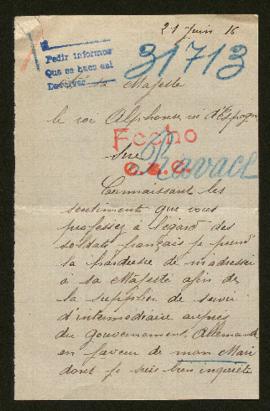 21 Juin 16
Pedir informes
Que se hace asi
Devolver
31713
Sa Majesté
le roi Alphonse roi d'Espagne
Fecho
Sire
Ravact
Connaissant les
sentiments que vous
professez à l'égard des
soldats français je prend
la hardiesse de m'adresser
à sa Majesté afin de
la supplier de servir
d'intermédiaire auprès
du Gouvernement Allemand
en faveur de mon Mari
dont je suis bien inquiète